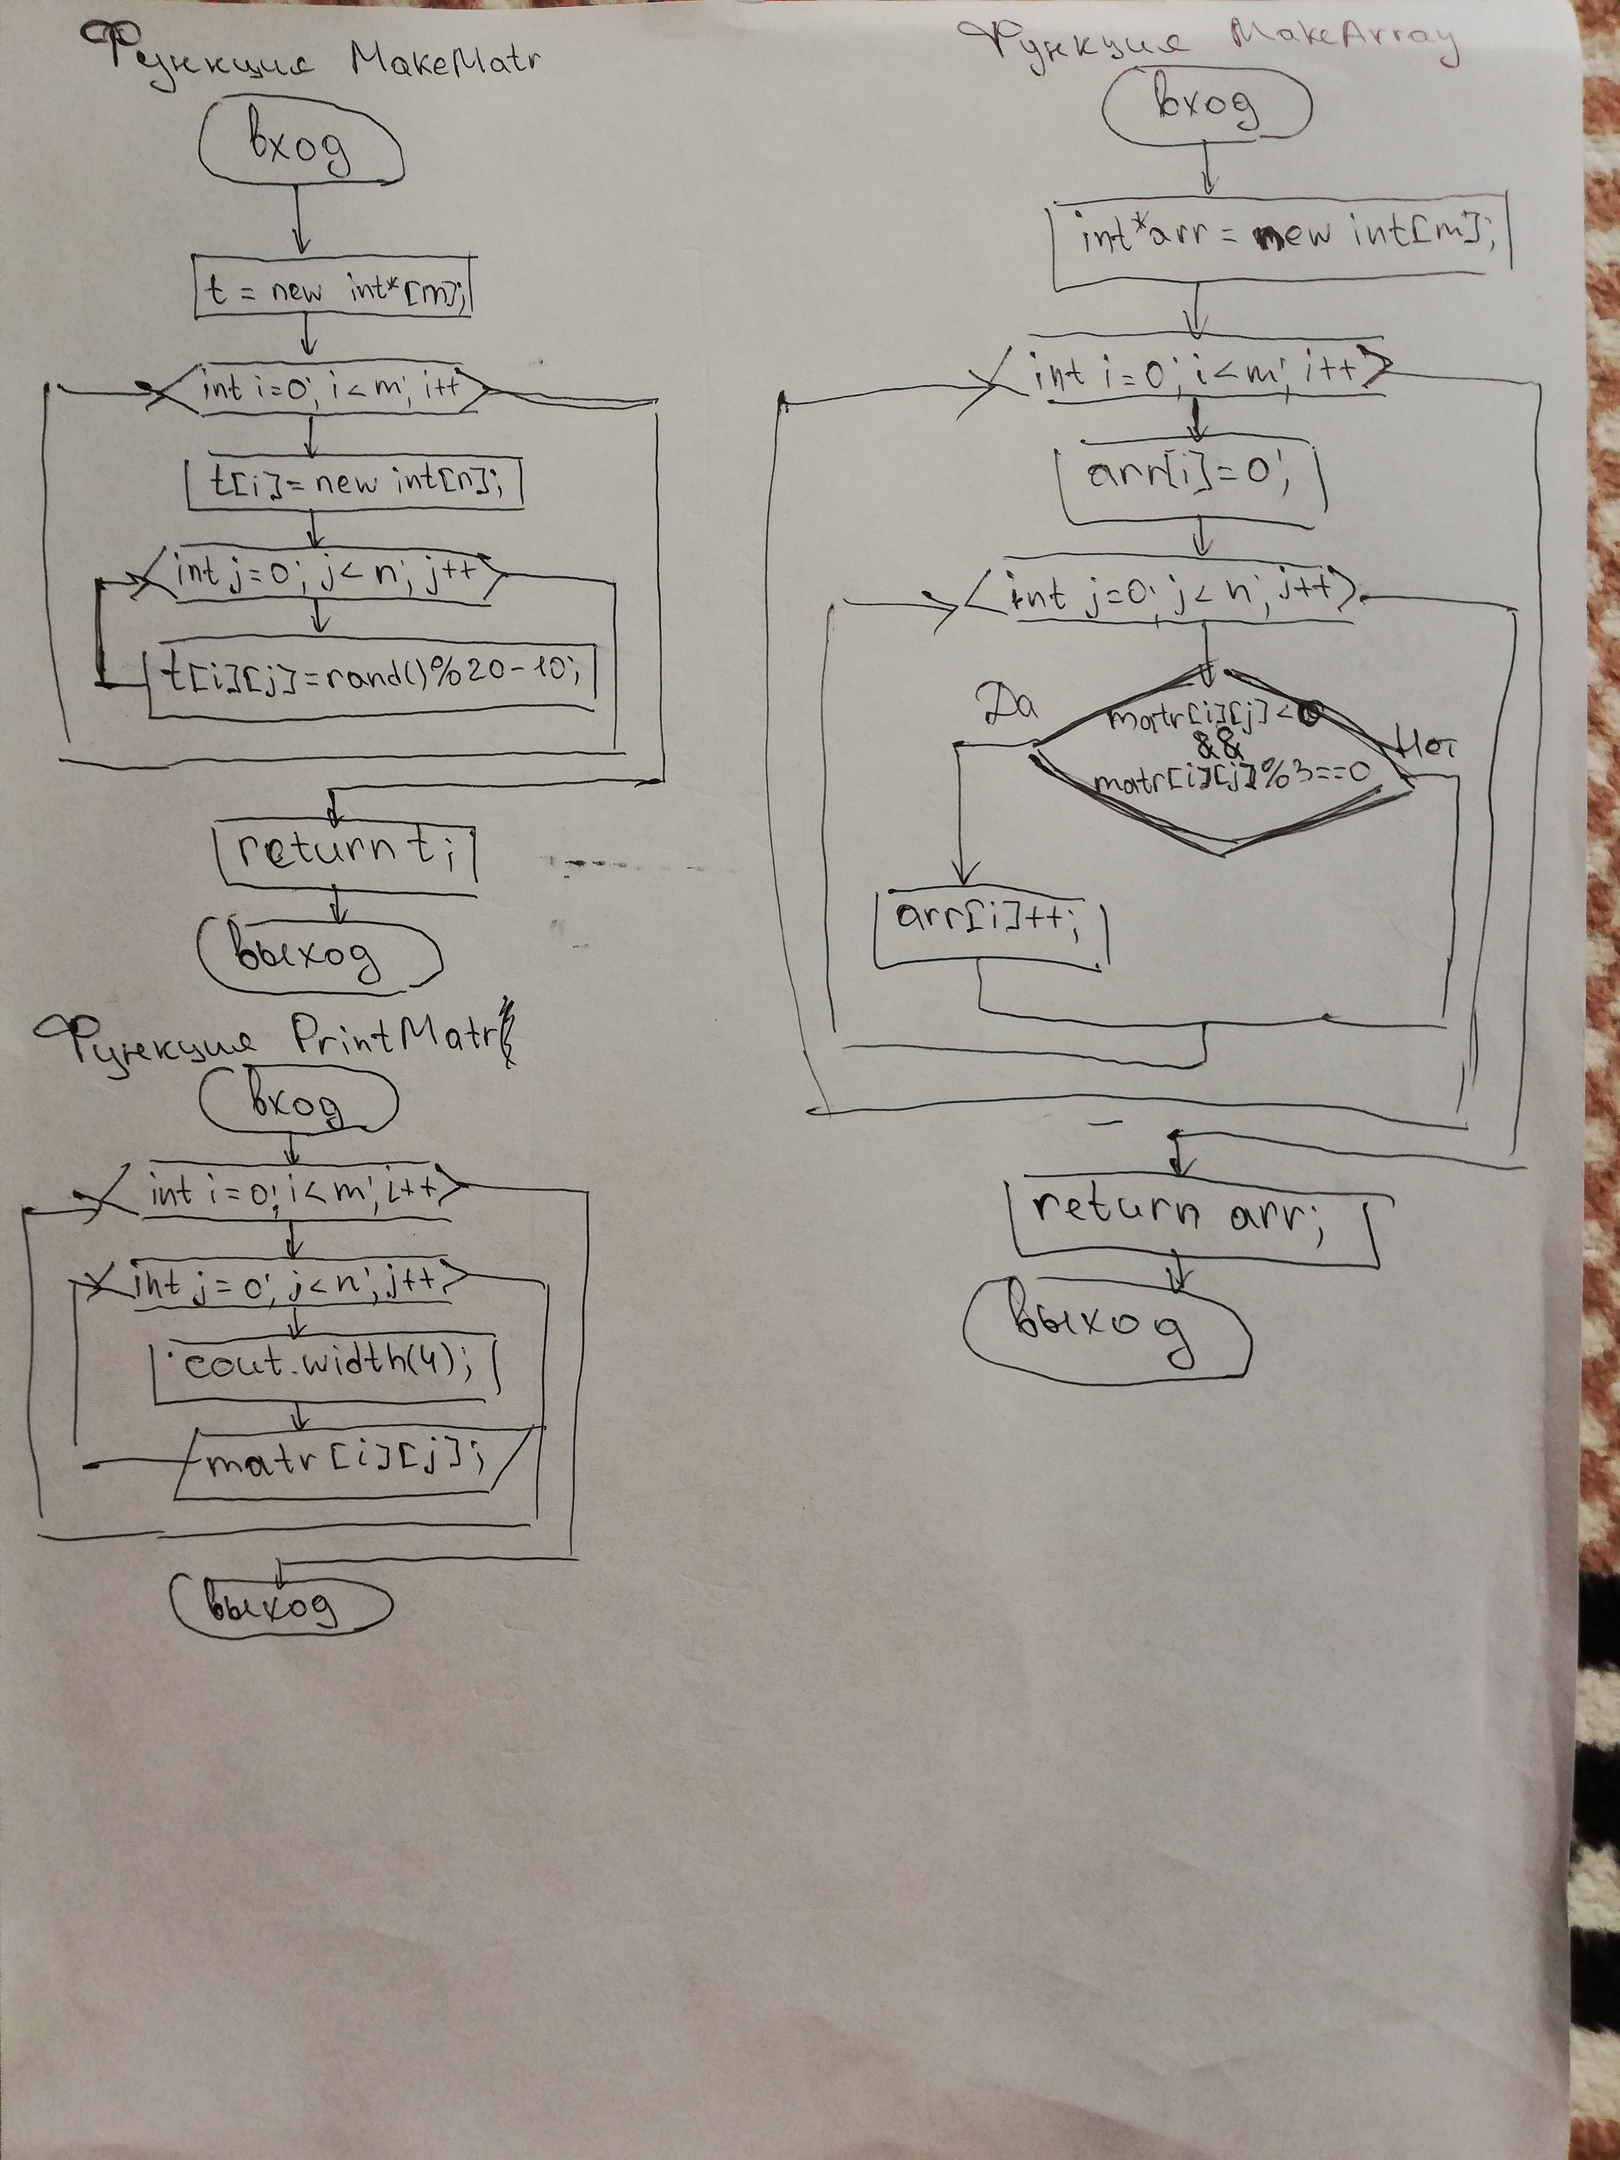 Функция MakeMatr
вход
t = new int*[m];
int i=0; i<m; i++
t[i]=new int[n];
int j=0; j<n; j++
t[i][j]=rand()%20-10;
return t;
выход
Функция PrintMatr
вход
int i=0; i<m; i++
int j=0; j<n; j++
cout.width(4);
matr[i][j];
выход
Функция MakeArray
вход
int*arr = new int[m];
int i=0; i<m; i++
arr[i]=0;
int j=0; j<n; j++
Да
matr[i][j]<0
&&
matr[i][j]%3==0
Нет
arr[i]++;
return arr;
выход